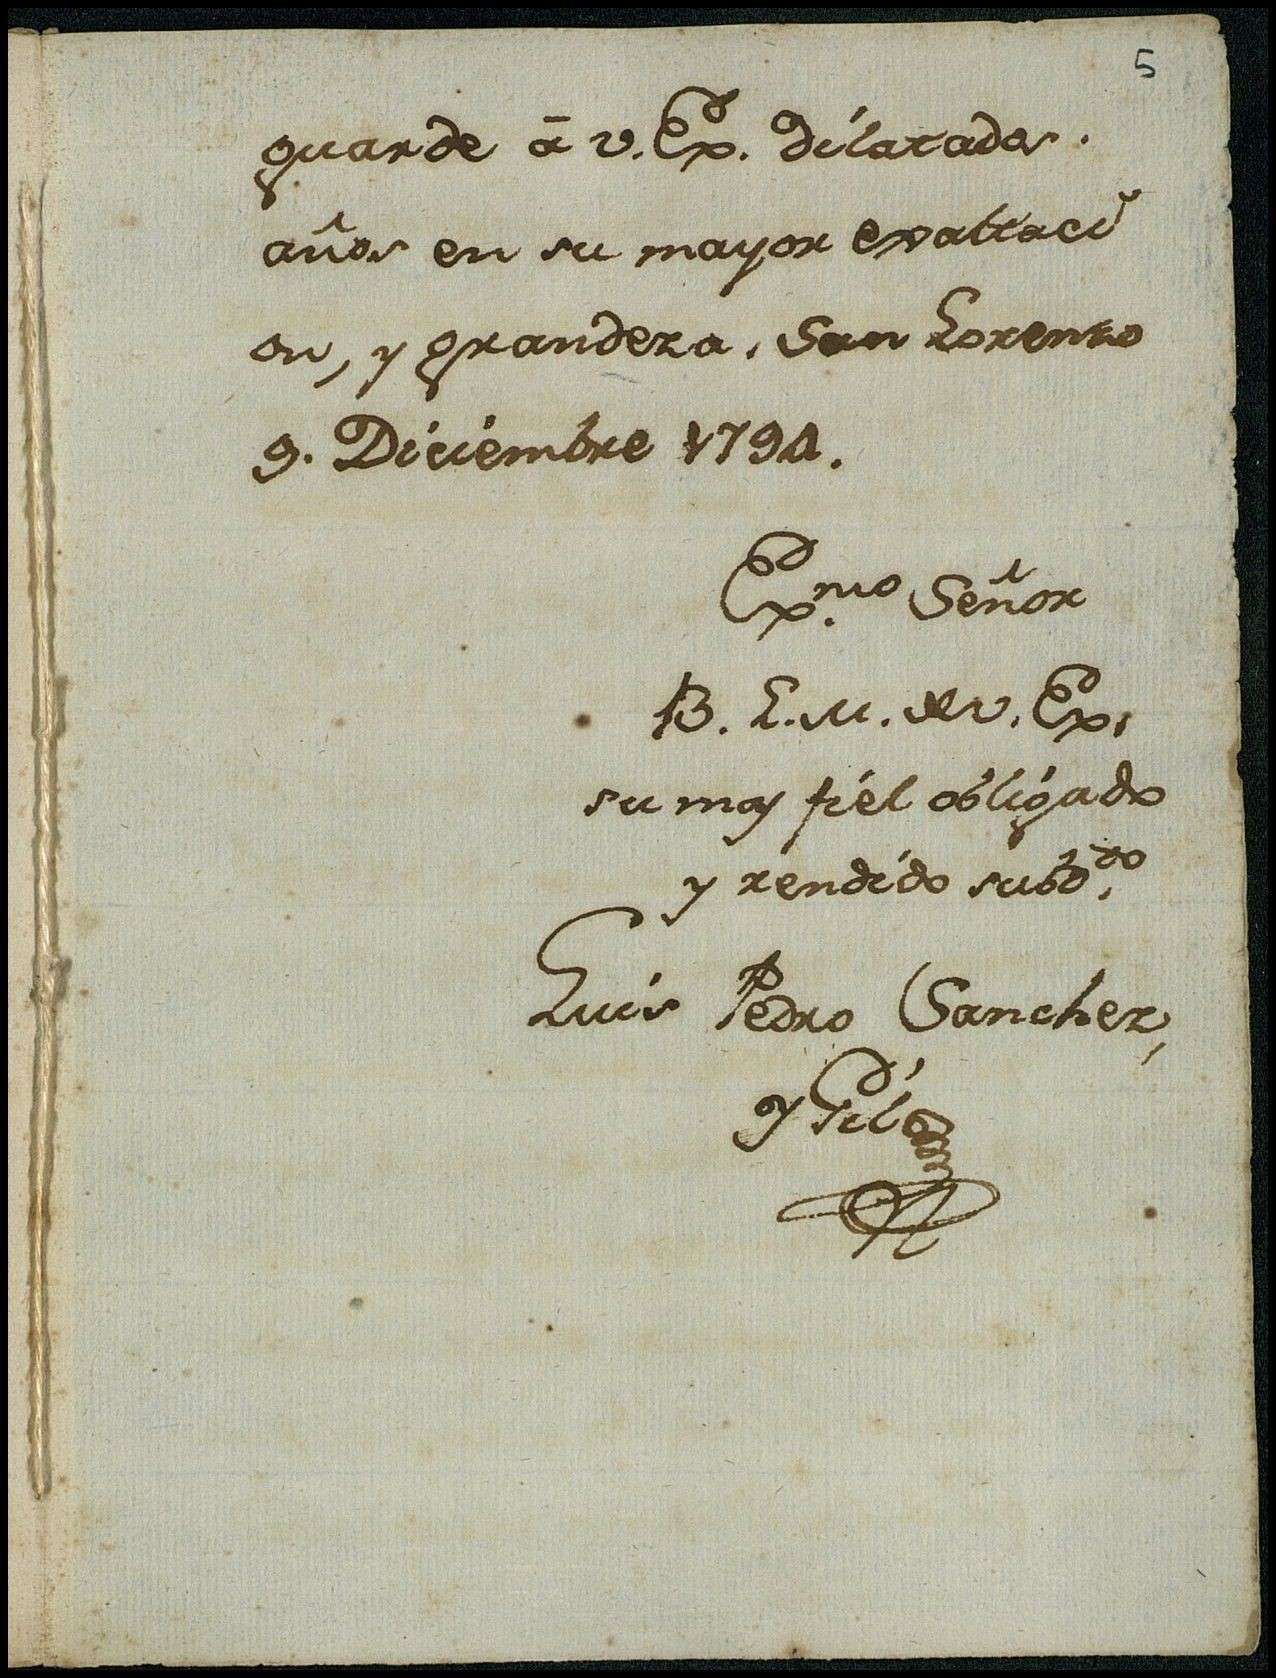 5
guarde â v. Ex. dilatados.
años en su mayor exaltaci
on, y grandeza. San Lorenzo
9. Diciembre 1794.
Ex.mo Señor
B. L. M. de v. Ex.
su may fiel obligado
y rendido subd.to
Luis Pedro Sanchez,
y Gil